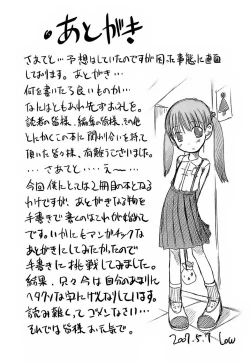 あとがき
さあてと…予想はしていたのですが困った事態に直面
しております。あとがき…
何を書いたら良いものか…
なにはともあれ先ずお礼を。
読者の皆様、編集の皆様、その他
とにかくこの本に関わりを持って
頂いた皆々様、有難うございました。
……さあてと……え〜…
今回僕にとっては2冊目の本となる
わけですが、あとがきなる物を
手書きで書くのはこれが初めて
です。いかにもマンガチックな
あとがきにしてみたかったので
手書きに挑戦してみました。
結果、只々今は自分のあまりに
ヘタクソな字にげんなりしています。
読み難くてゴメンなさい…
それでは皆様お元気で。
2007.5.7 Low